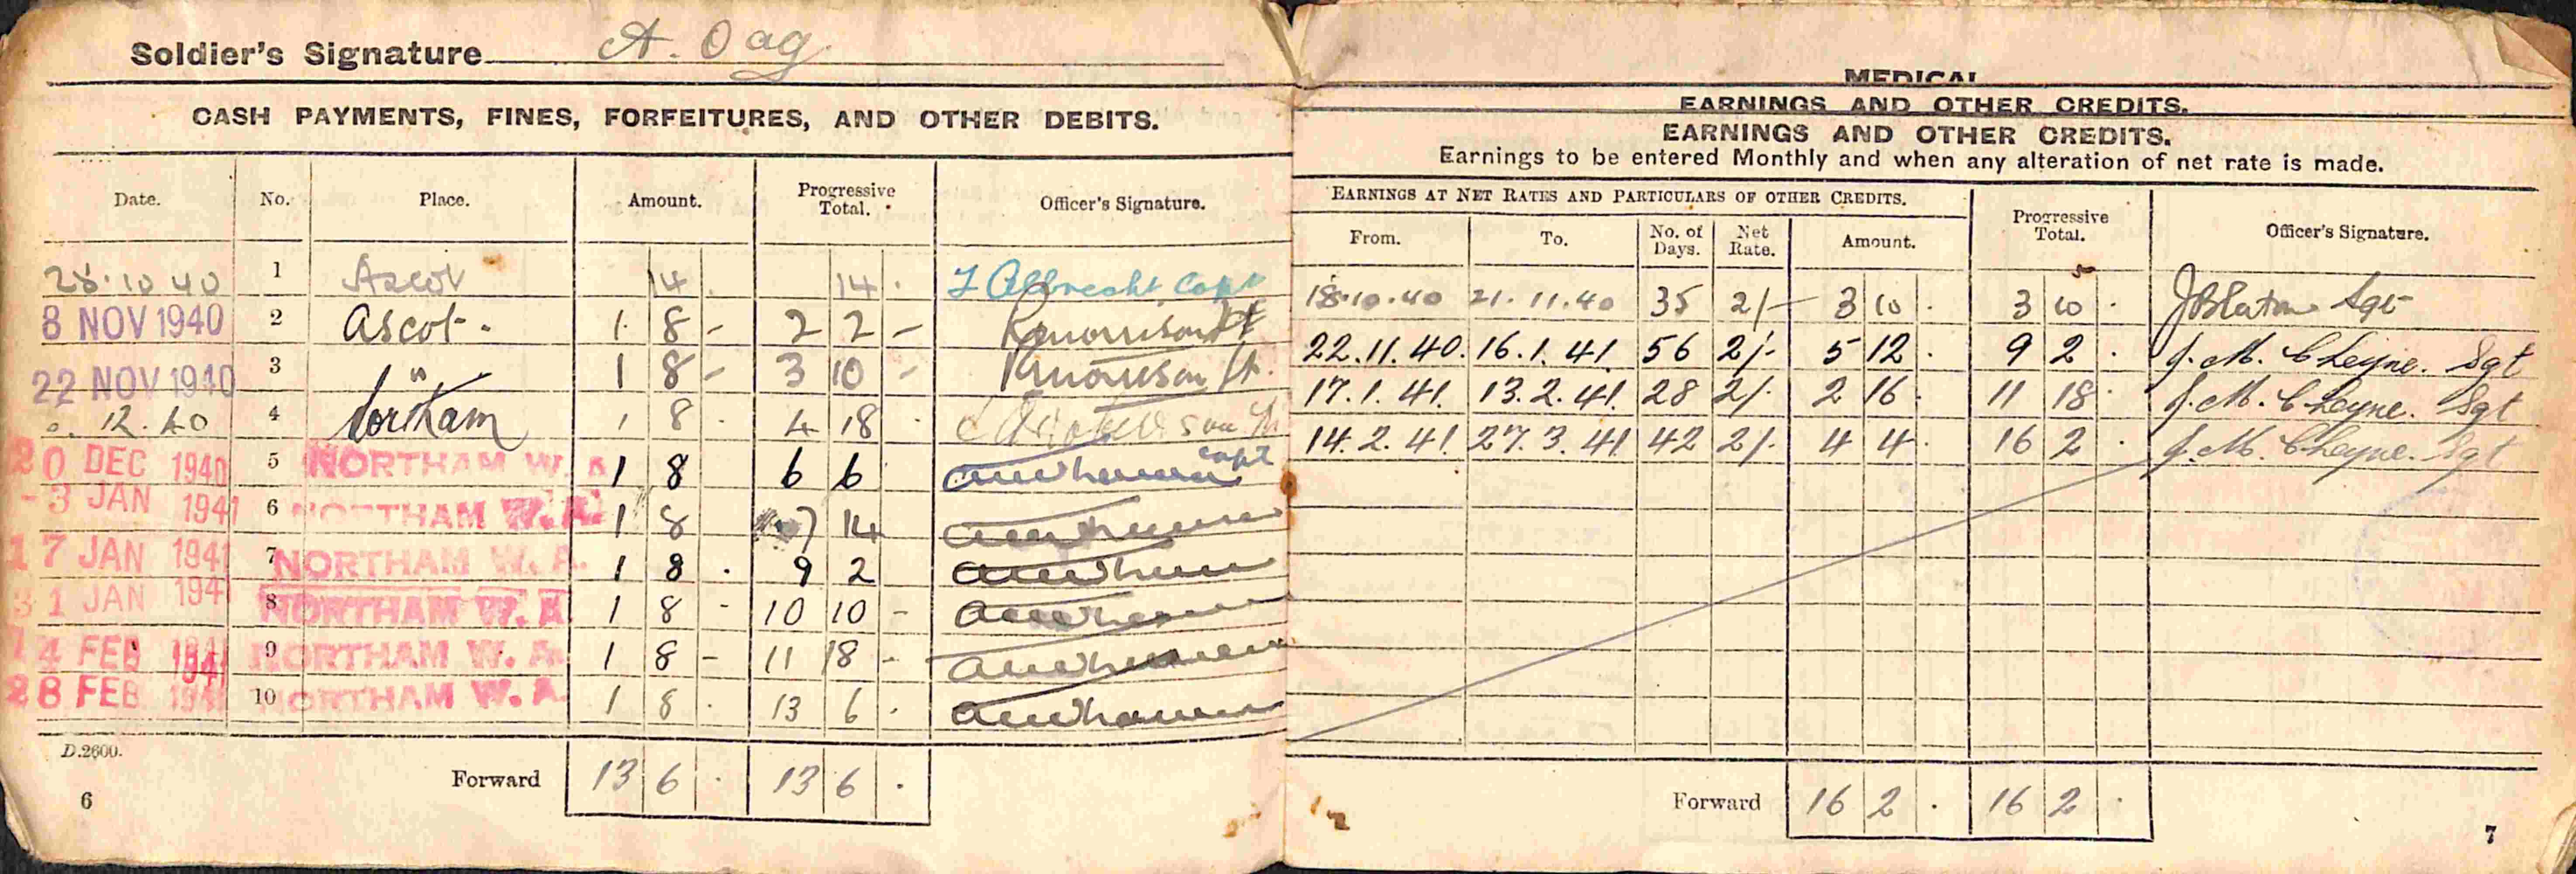 Soldier's Signature A. Oag
CASH PAYMENTS, FINES, FORFEITURES, AND OTHER DEBITS.
Date. No. Place. Amount. Progressive Total. Officer's Signature.
28.10.40 1 Ascot 14 . 14 . Albrecht Capt
8 NOV 1940 2 Ascot. 1 8 - 2 2 - Lt
22 NOV 1940 3 " 1 8 - 3 10 - Lt.
12.40 4 Northam 1 8 . 4 18 .
20 DEC 1940 5 NORTHAM W.A 1 8 6 6 Capt
-3 JAN 1941 6 NORTHAM W.A. 1 8 7 14
17 JAN 1941 7 NORTHAM W.A. 1 8 . 9 2
31 JAN 1941 8 NORTHAM W.A 1 8 - 10 10 -
14 FEB 1941 9 NORTHAM W.A. 1 8 - 11 18 -
28 FEB 1941 10 NORTHAM W.A. 1 8 . 13 6 .
D.2600.
Forward 13 6 . 13 6 .
6
MEDICAL
EARNINGS AND OTHER CREDITS.
EARNINGS AND OTHER CREDITS.
Earnings to be entered Monthly and when any alteration of net rate is made.
EARNINGS AT NET RATES AND PARTICULARS OF OTHER CREDITS. Progressive Total. Officer's Signature.
From. To. No. of Days. Net Rate. Amount.
18.10.40 21.11.40 35 2/- 3 10 . 3 10 . Sgt
22.11.40. 16.1.41. 56 2/- 5 12 . 9 2 . J. M. Cheyne. Sgt
17.1.41. 13.2.41. 28 2/- 2 16 . 11 18 . J. M. Cheyne. Sgt
14.2.41. 27.3.41 42 2/- 4 4 . 16 2 . J. M. Cheyne. Sgt
Forward 16 2 . 16 2 .
7